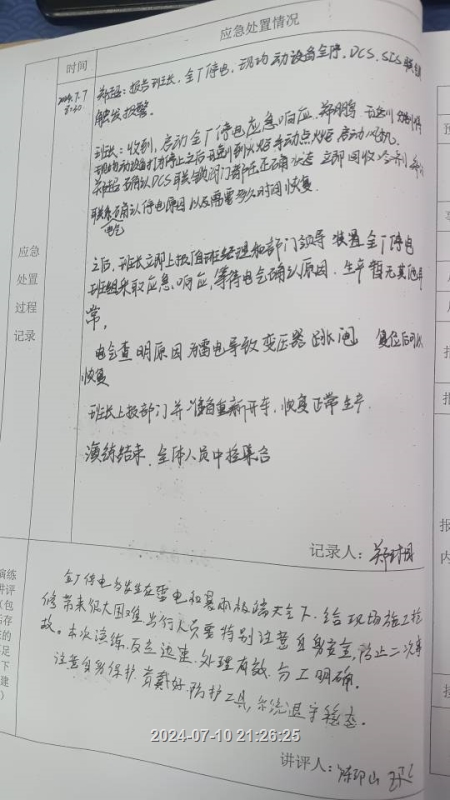 应急处置情况
时间
2024.7.7
报告班长,全厂停电,现场动设备全停,DCS、SIS联锁
触发报警。
班长:收到,启动全厂停电应急响应,
现场动设备打为停止之后去到火炬手动点火炬,启动风机。
确认DCS联锁阀门都在正确状态 立即回收冷剂
联系电气确认停电原因以及需要多久时间恢复。
之后,班长立即上报值班经理和部门领导 装置全厂停电
班组采取应急响应,等待电气确认原因,生产暂无其他异
常。
电气查明原因为雷电导致变压器跳闸 复位后可以
恢复
班长上报部门并准备重新开车,恢复正常生产.
演练结束,全体人员中控集合
应急
处置
过程
记录
记录人:
全厂停电多发生在雷电和暴雨极端天气下,给现场施工抢
修带来很大困难,出行人员要特别注意自身安全,防止二次事
故。本次演练,反应迅速,处理有效,分工明确。
注意自身保护,穿戴好防护工具,系统退守稳态。
2024-07-10 21:26:25
讲评人: